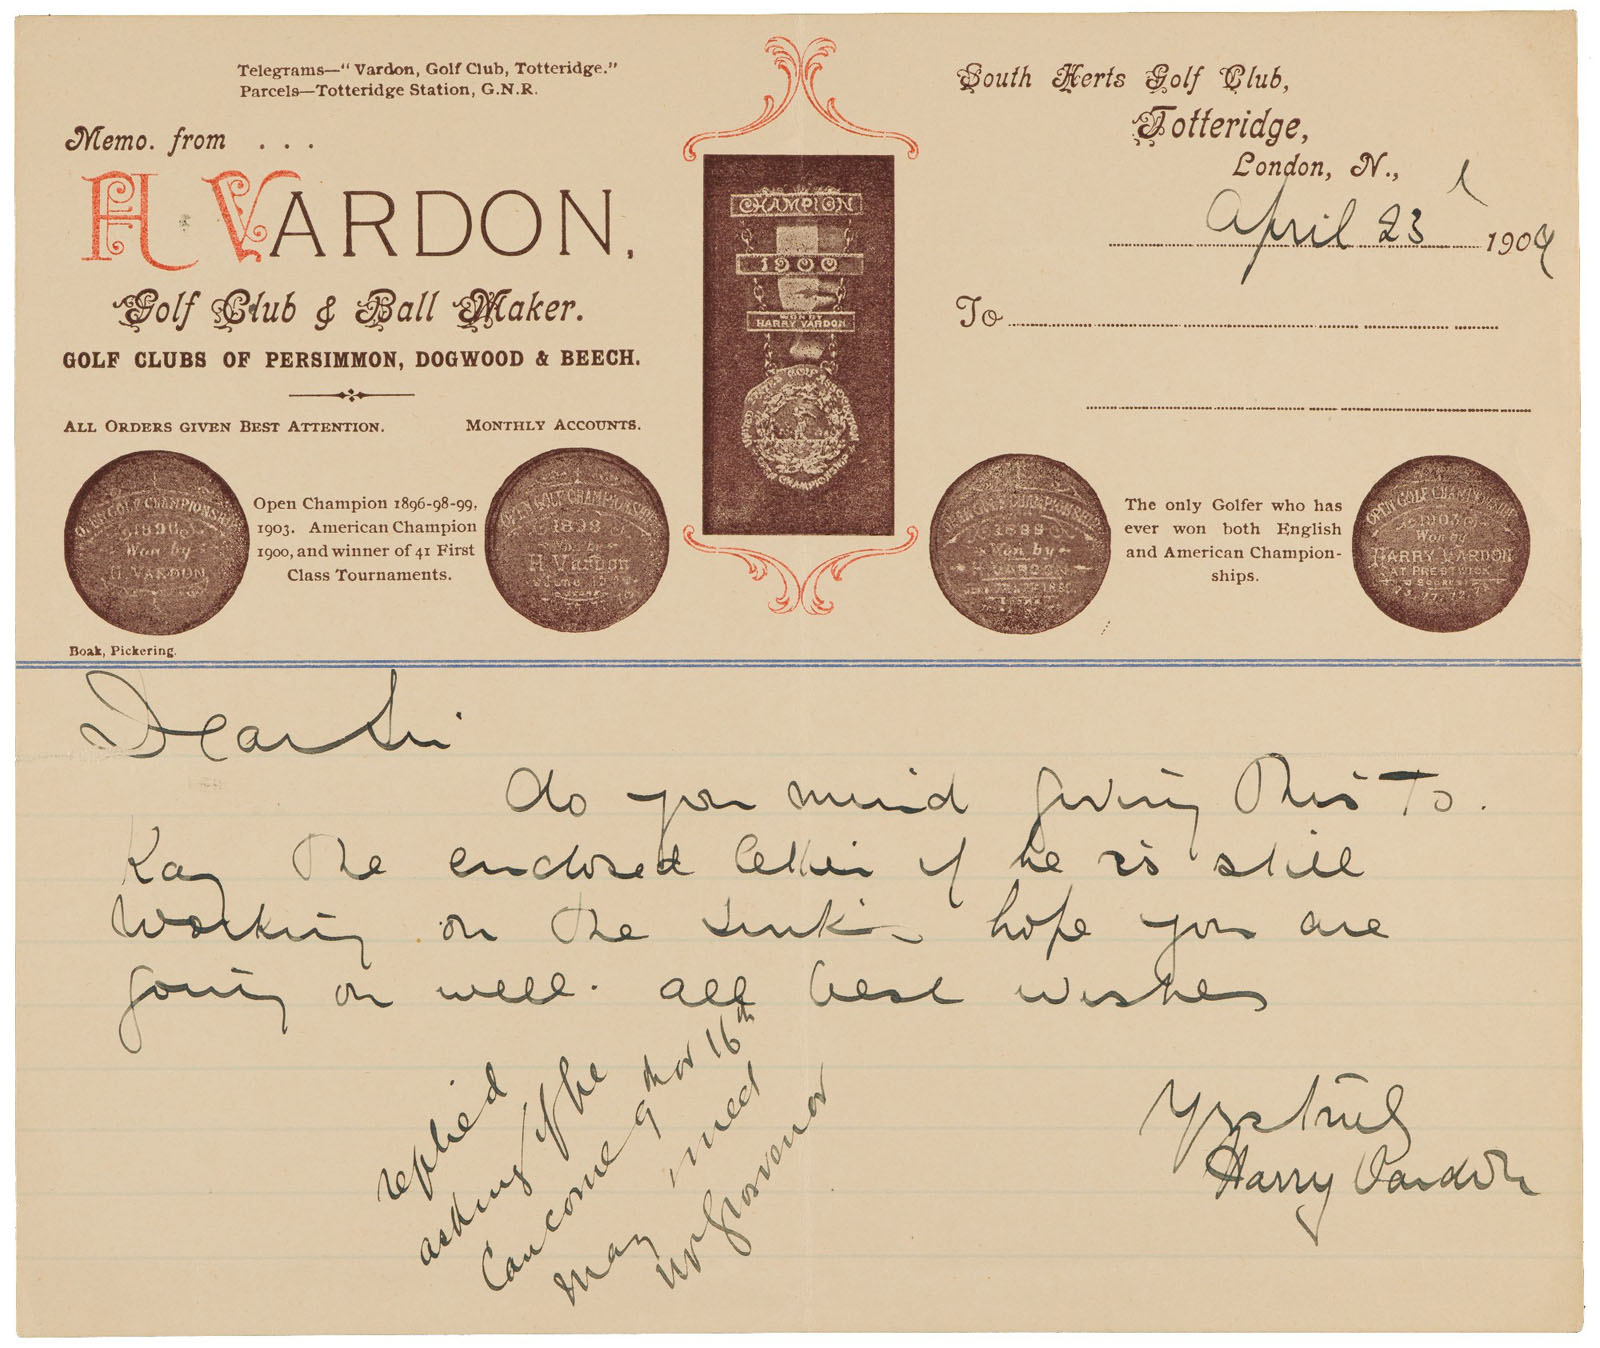 Telegrams—"Vardon, Golf Club, Totteridge."
Parcels—Totteridge Station, G.N.R.
Memo. from . . .
H. VARDON,
Golf Club & Ball Maker.
GOLF CLUBS OF PERSIMMON, DOGWOOD & BEECH.
ALL ORDERS GIVEN BEST ATTENTION. MONTHLY ACCOUNTS.
OPEN GOLF CHAMPIONSHIP
1896
Won by
H. VARDON
Open Champion 1896-98-99,
1903. American Champion
1900, and winner of 41 First
Class Tournaments.
OPEN GOLF CHAMPIONSHIP
1898
Won by
H. VARDON
June
CHAMPION
1900
WON BY
HARRY VARDON
UNITED STATES GOLF ASSOCIATION
CHAMPIONSHIP
South Herts Golf Club,
Totteridge,
London, N.,
April 23 1909
To
OPEN GOLF CHAMPIONSHIP
1899
Won by
H. VARDON
The only Golfer who has
ever won both English
and American Champion-
ships.
OPEN GOLF CHAMPIONSHIP
1903
Won by
HARRY VARDON
AT PRESTWICK
Boak, Pickering.
Dear Sir
do you mind giving This To.
Kay The enclosed letter if he is still
working on the Links hope you are
going on well. all best wishes
Yrs Truly
Harry Vardon
replied
asking if he
can come 9th or 16th
May
Grosvenor